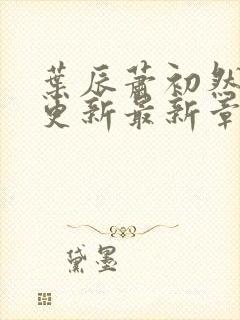 葉辰蕭初然
更新最新章
黛墨